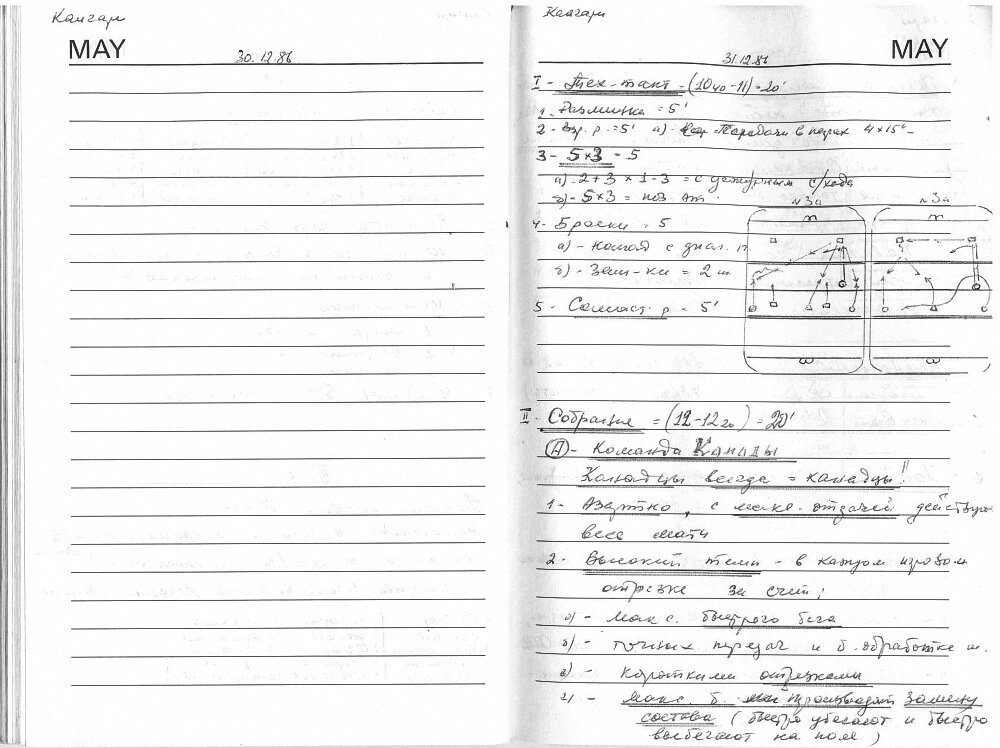 Калгари
MAY
30.12.86
Калгари
MAY
31.12.86
I - Тех-такт - (10 40 - 11) = 20'
1 - Разминка = 5'
2 - р. = 5' а) - Передачи в парах 4 x 15" -
3 - 5x3 - 5
а) - 2+3 x 1-3 = с дежурным с/хода
б) - 5x3 = поз. ат.
№3а
№3а
4 - Броски = 5
а) - с диаг. п.
б) - = 2 ш
5 - р = 5'
II - Собрание = (12 - 12 20) = 20'
(А) - Команда Канады
Канадцы всегда = канадцы!!
1 - Азартно, с макс. отдачей
весь матч
2 - Высокий темп - в каждом игровом
отрезке за счет:
а) - макс. быстрого бега
б) - точных передач и б. обработке ш.
в) - короткими отрезками
г) - макс. б. производят замену
состава (быстро убегают и быстро
выбегают на поле)